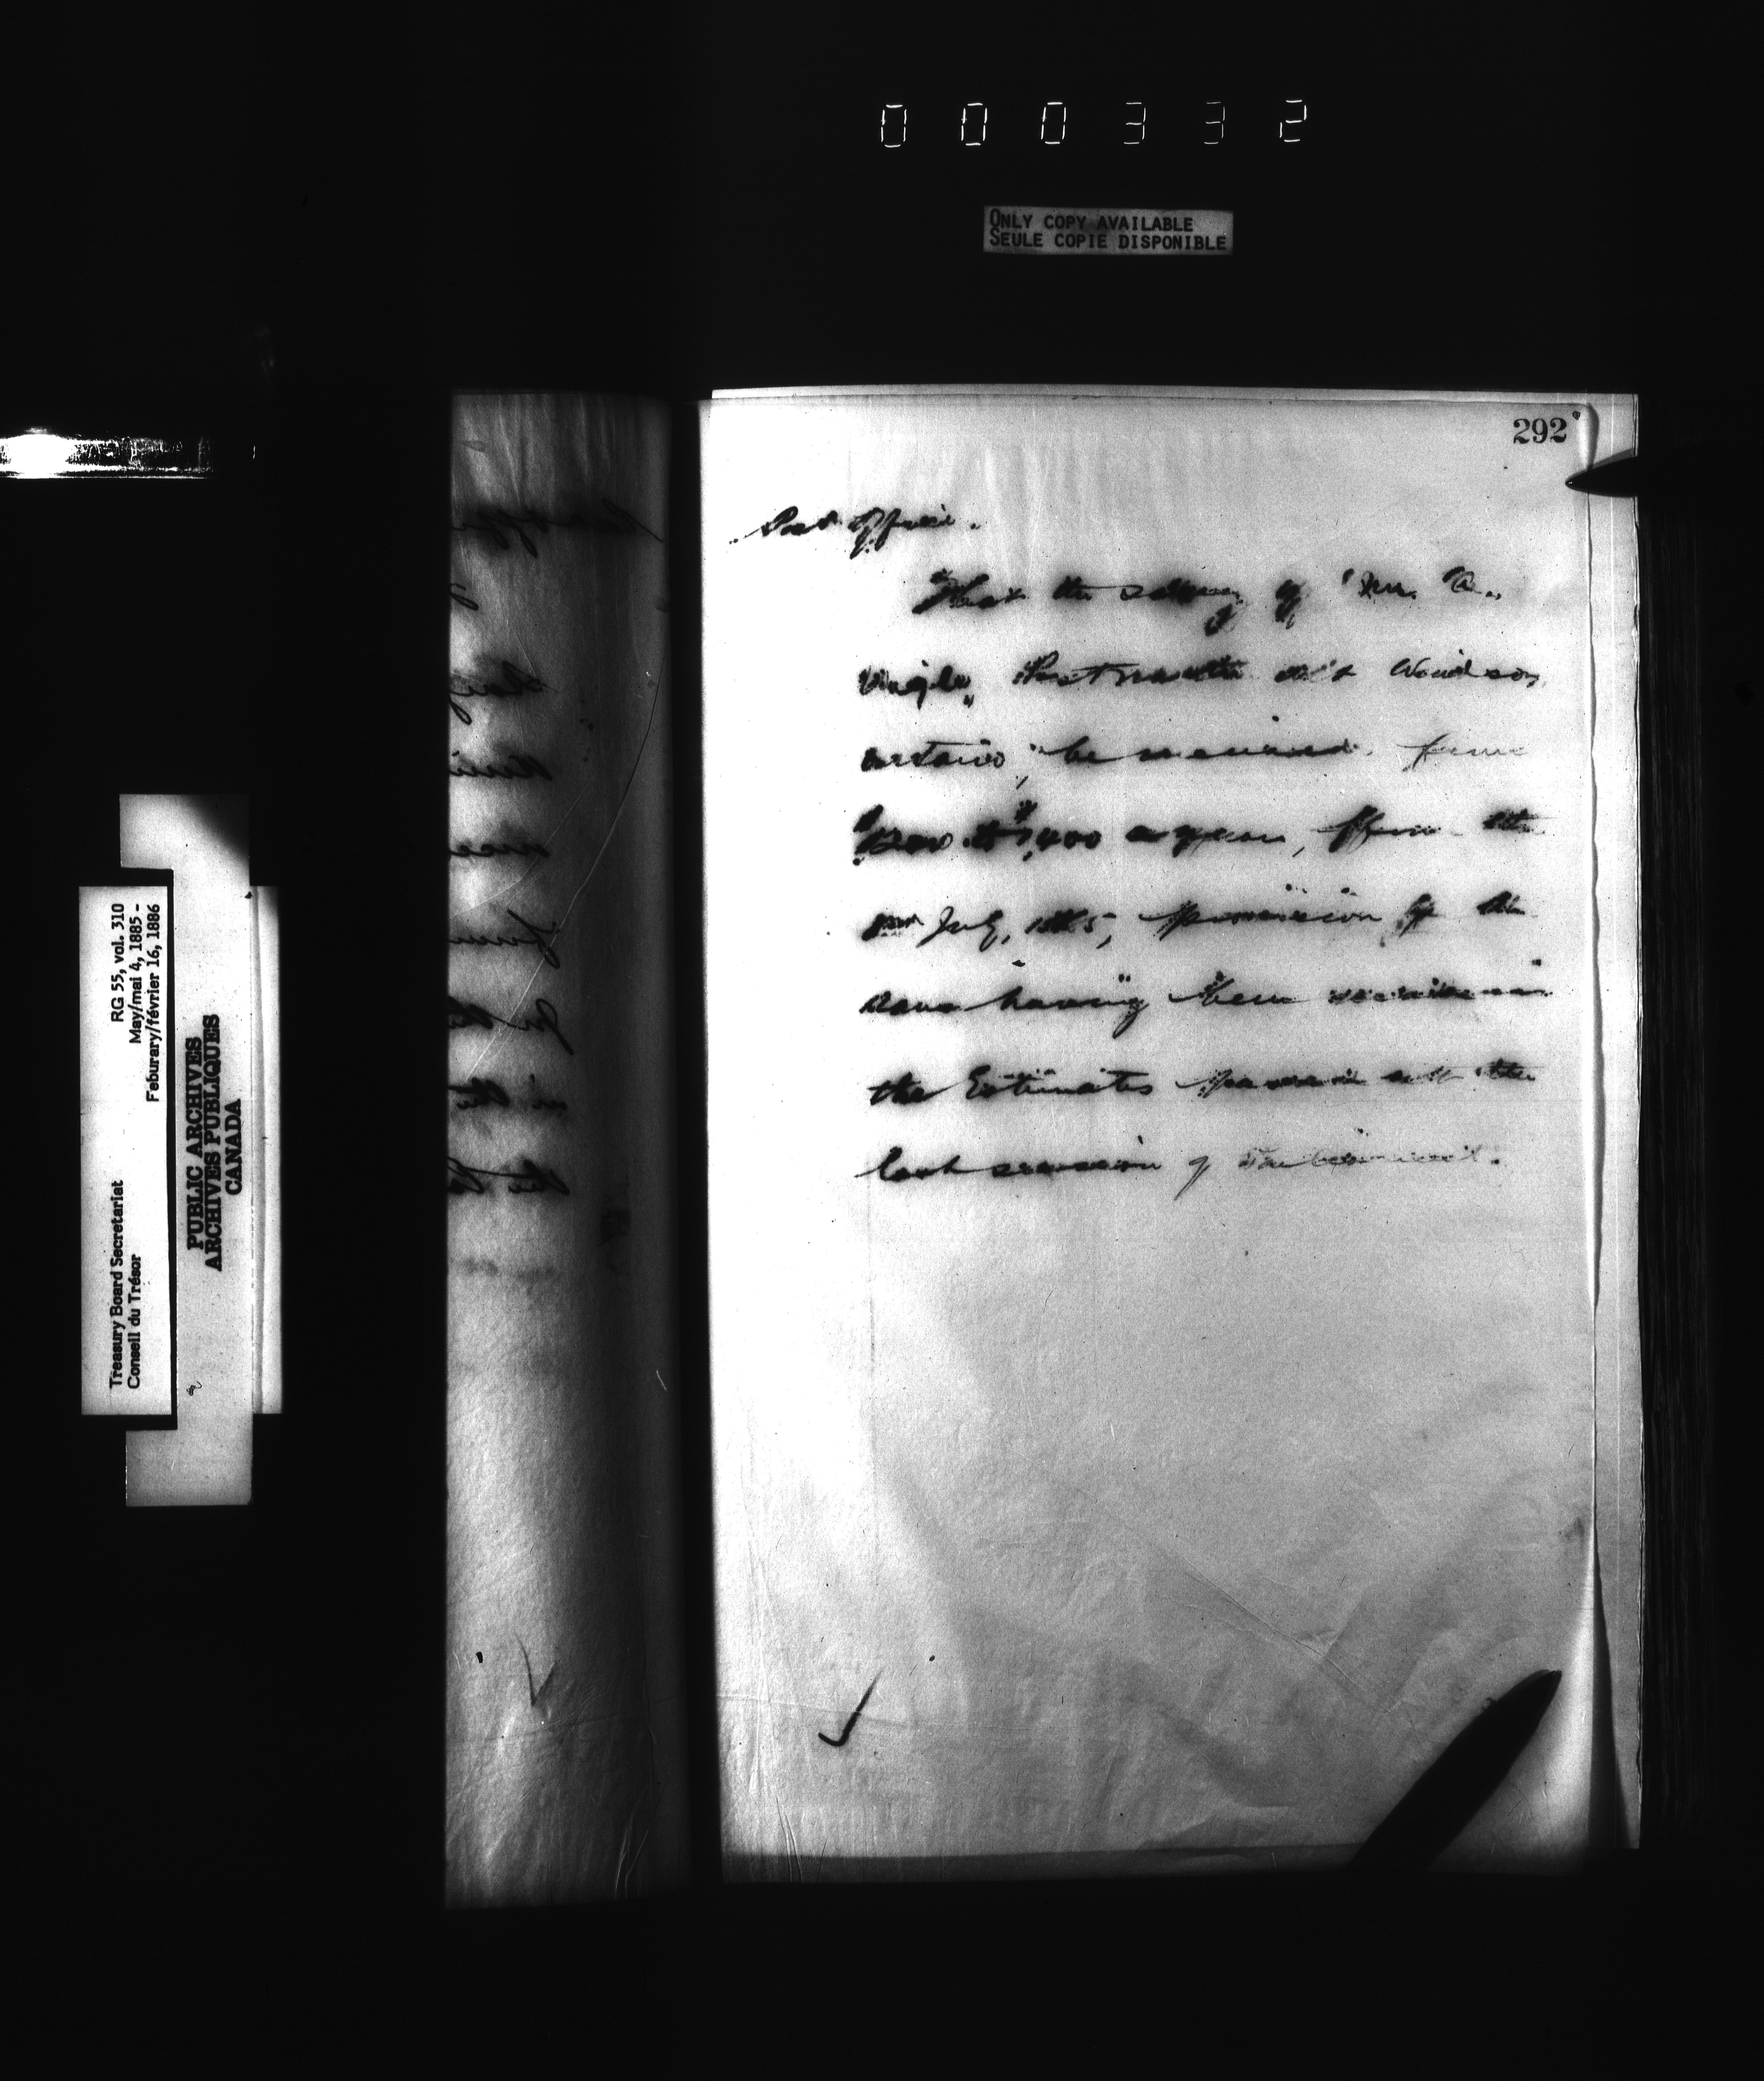 000332
ONLY COPY AVAILABLE
SEULE COPIE DISPONIBLE
292
Post Office.
That the salary of Mr. A.
Postmaster at Windsor
Ontario, be increased from
to $1,400 a year, from the
1st July, 1885, provision for the
same having been made in
the Estimates passed at the
last session of Parliament.
RG 55, vol. 310
May/mai 4, 1885 -
Feburary/février 16, 1886
Treasury Board Secretariat
Conseil du Trésor
PUBLIC ARCHIVES
ARCHIVES PUBLIQUES
CANADA